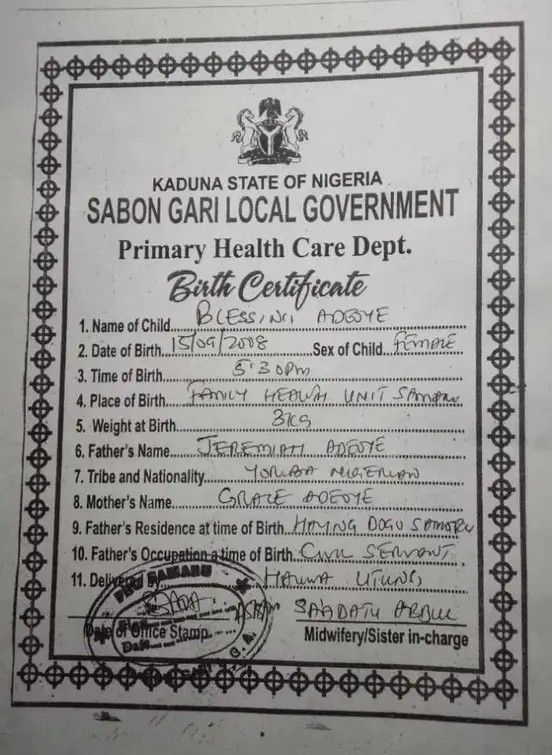 KADUNA STATE OF NIGERIA
SABON GARI LOCAL GOVERNMENT
Primary Health Care Dept.
Birth Certificate
1. Name of Child BLESSING ADEOYE
2. Date of Birth 15/09/2008 Sex of Child FEMALE
3. Time of Birth 5:30pm
4. Place of Birth FAMILY HEALTH UNIT SAMARU
5. Weight at Birth 3kg
6. Father's Name JEREMIAH ADEOYE
7. Tribe and Nationality YORUBA NIGERIAN
8. Mother's Name GRACE ADEOYE
9. Father's Residence at time of Birth HAYING DOGO SAMARU
10. Father's Occupation a time of Birth CIVIL SERVANT
11. Delivered By HAUWA
SAADATU
Date of Office Stamp Midwifery/Sister in-charge